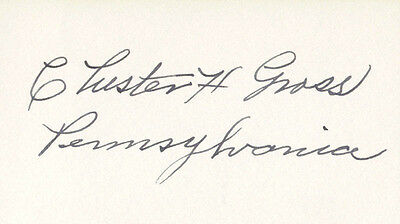 Chester H Gross
Pennsylvania